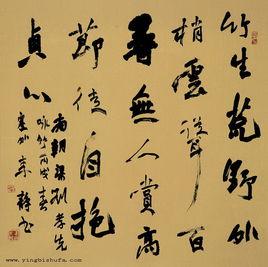 竹生荒野外
梢雲聳百
尋無人賞高
節徒自抱
貞心
南朝梁劉孝先
詠竹丙戌春
www.yingbishufa.com